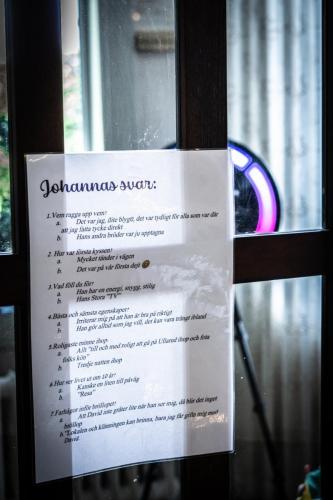 Johannas svar:
1. Vem ragga upp vem?
a. Det var jag, lite blygt, det var tydligt för alla som var där
att jag fatta tycke direkt
b. Hans andra bröder var ju upptagna
2. Hur var första kyssen?
a. Mycket tänder i vägen
b. Det var på vår första dejt
3. Vad föll du för?
a. Han har en energi, snygg, stilig
b. Hans Stora "TV"
4. Bästa och sämsta egenskaper?
a. Irriterar mig på att han är bra på riktigt
b. Han gör alltid som jag vill, det kan vara trångt ibland
5. Roligaste minne ihop
a. Allt "till och med roligt att gå på Ullared ihop och fota
folks kön"
b. Tredje natten ihop
6. Hur ser livet ut om 10 år?
a. Kanske en liten på väg
b. "Resa"
7. Farhågor inför bröllopet?
a. Att David inte gråter när han ser mig, då blir det inget
bröllop
b. "Lokalen och klänningen kan brinna, bara jag får gifta mig med
David